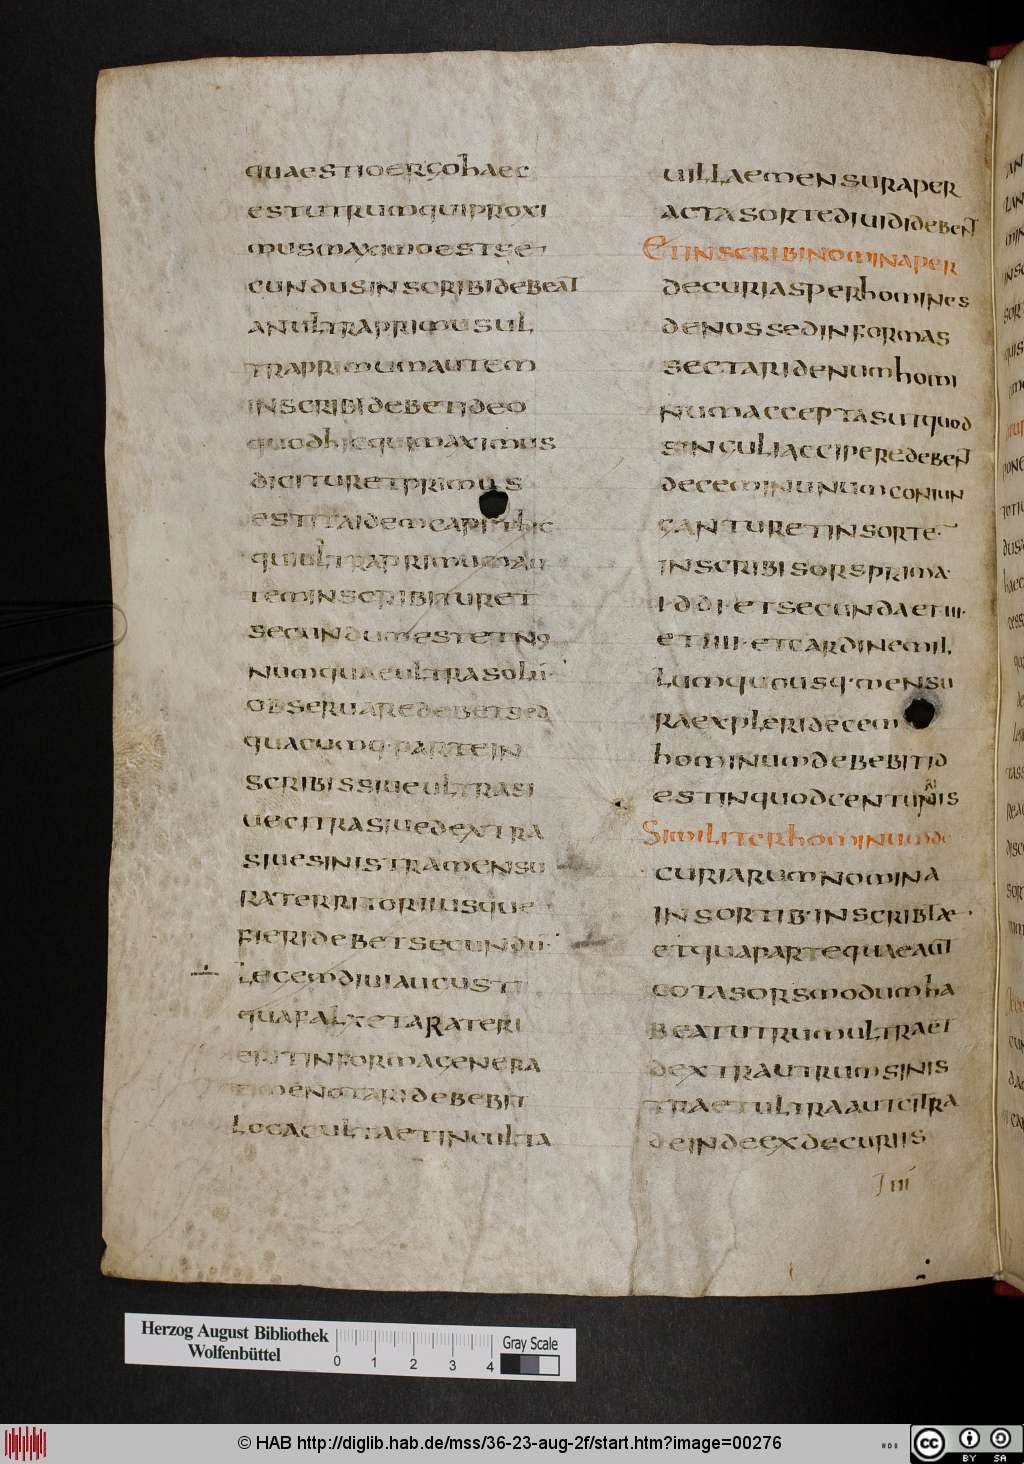 quaestioergohaec
estutrumquiproxi
musmaximoestse
cundusinscribidebeat
anultraprimusul
traprimumautem
inscribidebetideo
quodhicquimaximus
dicituretprimus
estitaidemcapithic
quiultraprimumau
teminscribituret
secundumestetno
numquaeultrasolū
obseruaredebetsed
quacumq·partein
scribissiueultrasi
uecitrasiuedextra
siuesinistramensu
raterritoriiusque
fieridebetsecundū·
legemdiuiaugusti
quafalxetarateri
eritinformagenera
timenotaridebebit
locacultaetinculta
uillaemensuraper
actasortediuididebent
Etinscribinominaper
decuriasperhomines
denossedinformas
sectaridenumhomi
numacceptasutquod
singuliacciperedebent
deceminunumconiun
ganturetinsorte·
inscribisorsprima·
i·d d i·etsecundaetiii·
etiiii·etcardinemil,
lumquousq·mensu
raexpleridecem
hominumdebebitid
estinquodcenturiis
Similiterhominumde
curiarumnomina
insortib·inscribtæ·
etquapartequaeauī
gotasorsmodumha
beatutrumultraet
dextrautrumsinis
traetultraautcitra
deindeexdecuriis
Herzog August Bibliothek
Wolfenbüttel
0 1 2 3 4
Gray Scale
© HAB http://diglib.hab.de/mss/36-23-aug-2f/start.htm?image=00276
cc BY SA